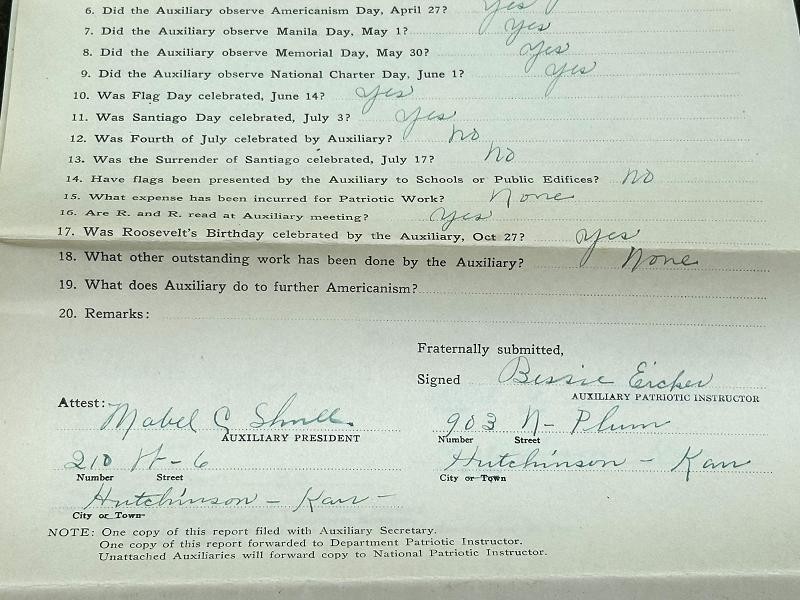 6. Did the Auxiliary observe Americanism Day, April 27? Yes
7. Did the Auxiliary observe Manila Day, May 1? Yes
8. Did the Auxiliary observe Memorial Day, May 30? Yes
9. Did the Auxiliary observe National Charter Day, June 1? Yes
10. Was Flag Day celebrated, June 14? Yes
11. Was Santiago Day celebrated, July 3? Yes
12. Was Fourth of July celebrated by Auxiliary? No
13. Was the Surrender of Santiago celebrated, July 17? No
14. Have flags been presented by the Auxiliary to Schools or Public Edifices? No
15. What expense has been incurred for Patriotic Work? None
16. Are R. and R. read at Auxiliary meeting? Yes
17. Was Roosevelt's Birthday celebrated by the Auxiliary, Oct 27? Yes
18. What other outstanding work has been done by the Auxiliary? None
19. What does Auxiliary do to further Americanism?
20. Remarks:
Fraternally submitted,
Signed Bessie Eicher
AUXILIARY PATRIOTIC INSTRUCTOR
Attest: Mabel C
AUXILIARY PRESIDENT
903 N- Plum
Number Street
210 - 6
Number Street
Hutchinson - Kan
City or Town
Hutchinson - Kan -
City or Town
NOTE: One copy of this report filed with Auxiliary Secretary.
One copy of this report forwarded to Department Patriotic Instructor.
Unattached Auxiliaries will forward copy to National Patriotic Instructor.